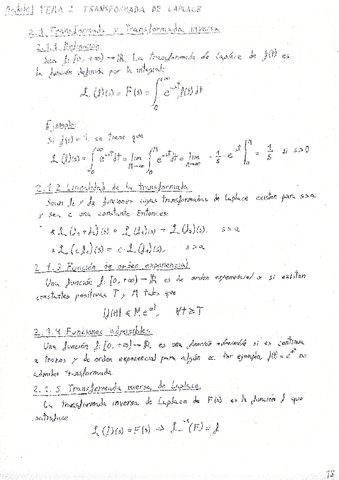 TEMA 2: TRANSFORMADA DE LAPLACE
2.1 Transformada y Transformada inversa
2.1.1 Definición
Sea f: [0, +∞) → ℝ. La transformada de Laplace de f(t) es
la función definida por la integral:
L(f)(s) = F(s) = ∫₀^{+∞} e^{-st} f(t) dt
Ejemplo:
Si f(t) = 1, se tiene que
L(f)(s) = ∫₀^{+∞} e^{-st} dt = lim_{M→∞} ∫₀^M e^{-st} dt = lim_{M→∞} -1/s · e^{-st} |₀^M = 1/s si s>0
2.1.2 Linealidad de la transformada
Sean f₁ y f₂ funciones cuyas transformadas de Laplace existen para s>α
y sea c una constante. Entonces:
L(f₁+f₂)(s) = L(f₁)(s) + L(f₂)(s). s>α
L(c f₁)(s) = c · L(f₁)(s). s>α
2.1.3 Función de orden exponencial
Una función f: [0, +∞) → ℝ es de orden exponencial α si existen
constantes positivas T y M tales que
|f(t)| ≤ M e^{αt}, ∀t ≥ T
2.1.4 Funciones admisibles
Una función f: [0, +∞) → ℝ es una función admisible si es continua
a trozos y de orden exponencial para algún α. Por ejemplo, f(t) = e^{t²} no
admite transformada.
2.1.5 Transformada inversa de Laplace
La transformada inversa de Laplace de F(s) es la función f que
satisface
L(f)(s) = F(s) ⇒ L⁻¹(F) = f